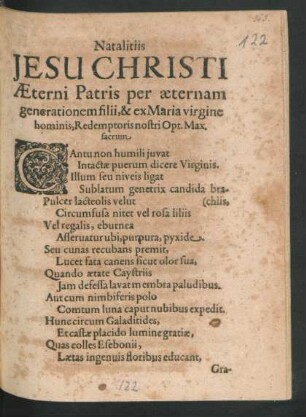 122
Natalitiis
JESU CHRISTI
Æterni Patris per æternam
generationem filii, & ex Maria virgine
hominis, Redemptoris nostri Opt. Max.
sacrum.
CAntu non humili juvat
Intactæ puerum dicere Virginis.
Illum seu niveis ligat
Sublatum genetrix candida bra-
Pulcer lacteolis velut (chiis,
Circumfusa nitet vel rosa liliis
Vel regalis, eburnea
Asservatur ubi, purpura, pyxide.
Seu cunas recubans premit,
Lucet fata canens sicut olor sua,
Quando ætate Caystriis
Jam defessa lavat membra paludibus.
Aut cum nimbiferis polo
Comtum luna caput nubibus expedit.
Hunc circum Galaditides,
Et castæ placido lumine gratiæ,
Quas colles Esebonii,
Lætas ingenuis floribus educant,
Gra-
122